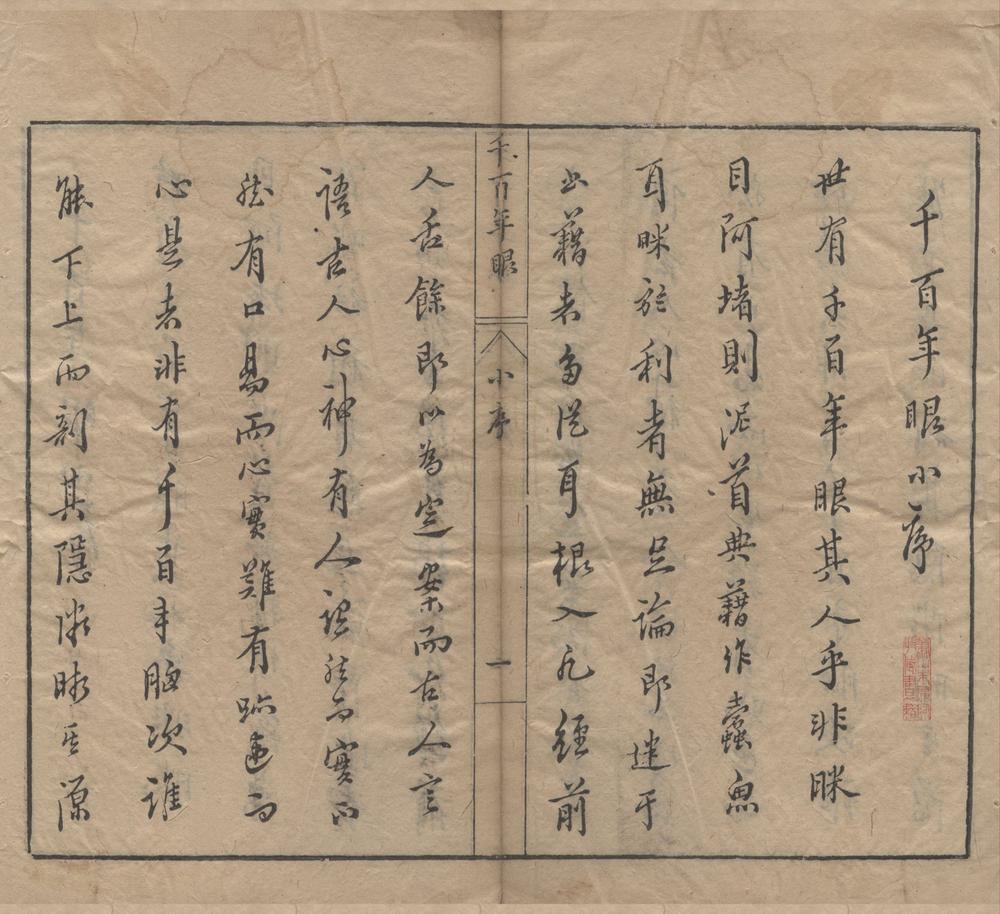 千百年眼小序
世有千百年眼其人乎非眯
目阿堵則泥首典藉作蠹魚
耳眯於利者無足論即埋于
此藉者多從耳根入凡經前
人舌餘即以為定案而古人言
語古人心神有人說然而實不
然有口易而心實難有跡違而
心是者非有千百年胸次誰
能下上而剖其隱微晰其源
千百年眼
小序
一